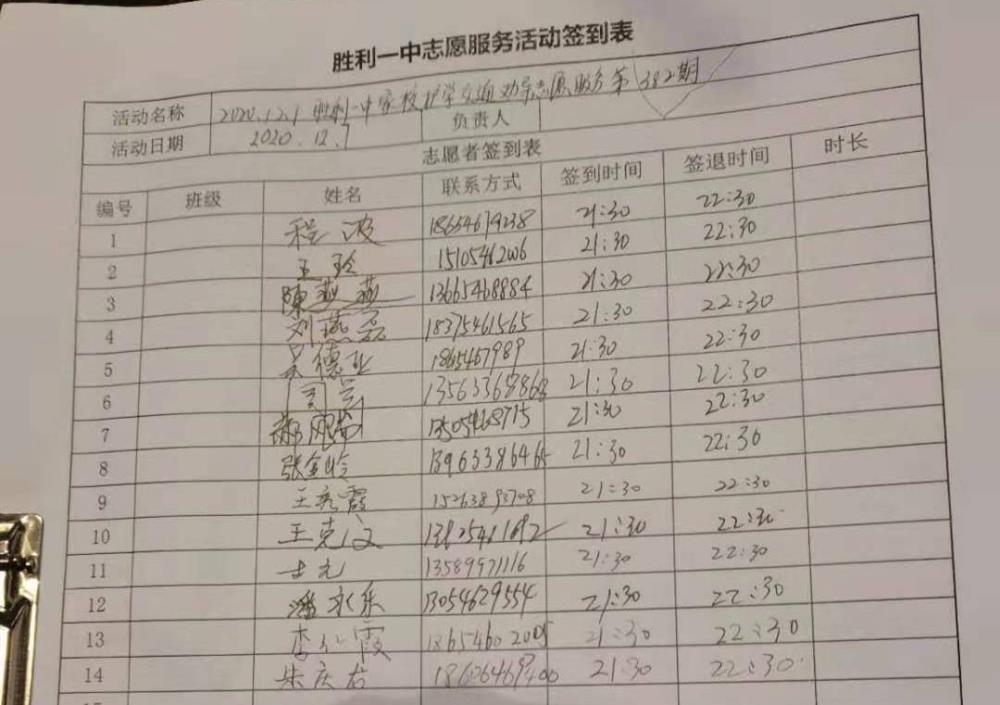 胜利一中志愿服务活动签到表
活动名称 2020.12.1 胜利一中家校护学交通劝导志愿服务第382期
活动日期 2020.12.7 负责人
志愿者签到表
编号 班级 姓名 联系方式 签到时间 签退时间 时长
1 程波 18654679238 21:30 22:30
2 王玲 15105462006 21:30 22:30
3 陳燕燕 13665468884 21:30 22:30
4 刘燕磊 18375461565 21:30 22:30
5 吴德业 1865467989 21:30 22:30
6 21:30 22:30
7 13505468715 21:30 22:30
8 张金岭 21:30 22:30
9 王亮霞 15263893708 21:30 22:30
10 王克文 21:30 22:30
11 13589971116 21:30 22:30
12 潘永乐 13054629554 21:30 22:30
13 霞 18654602005 21:30 22:30
14 朱庆岩 21:30 22:30